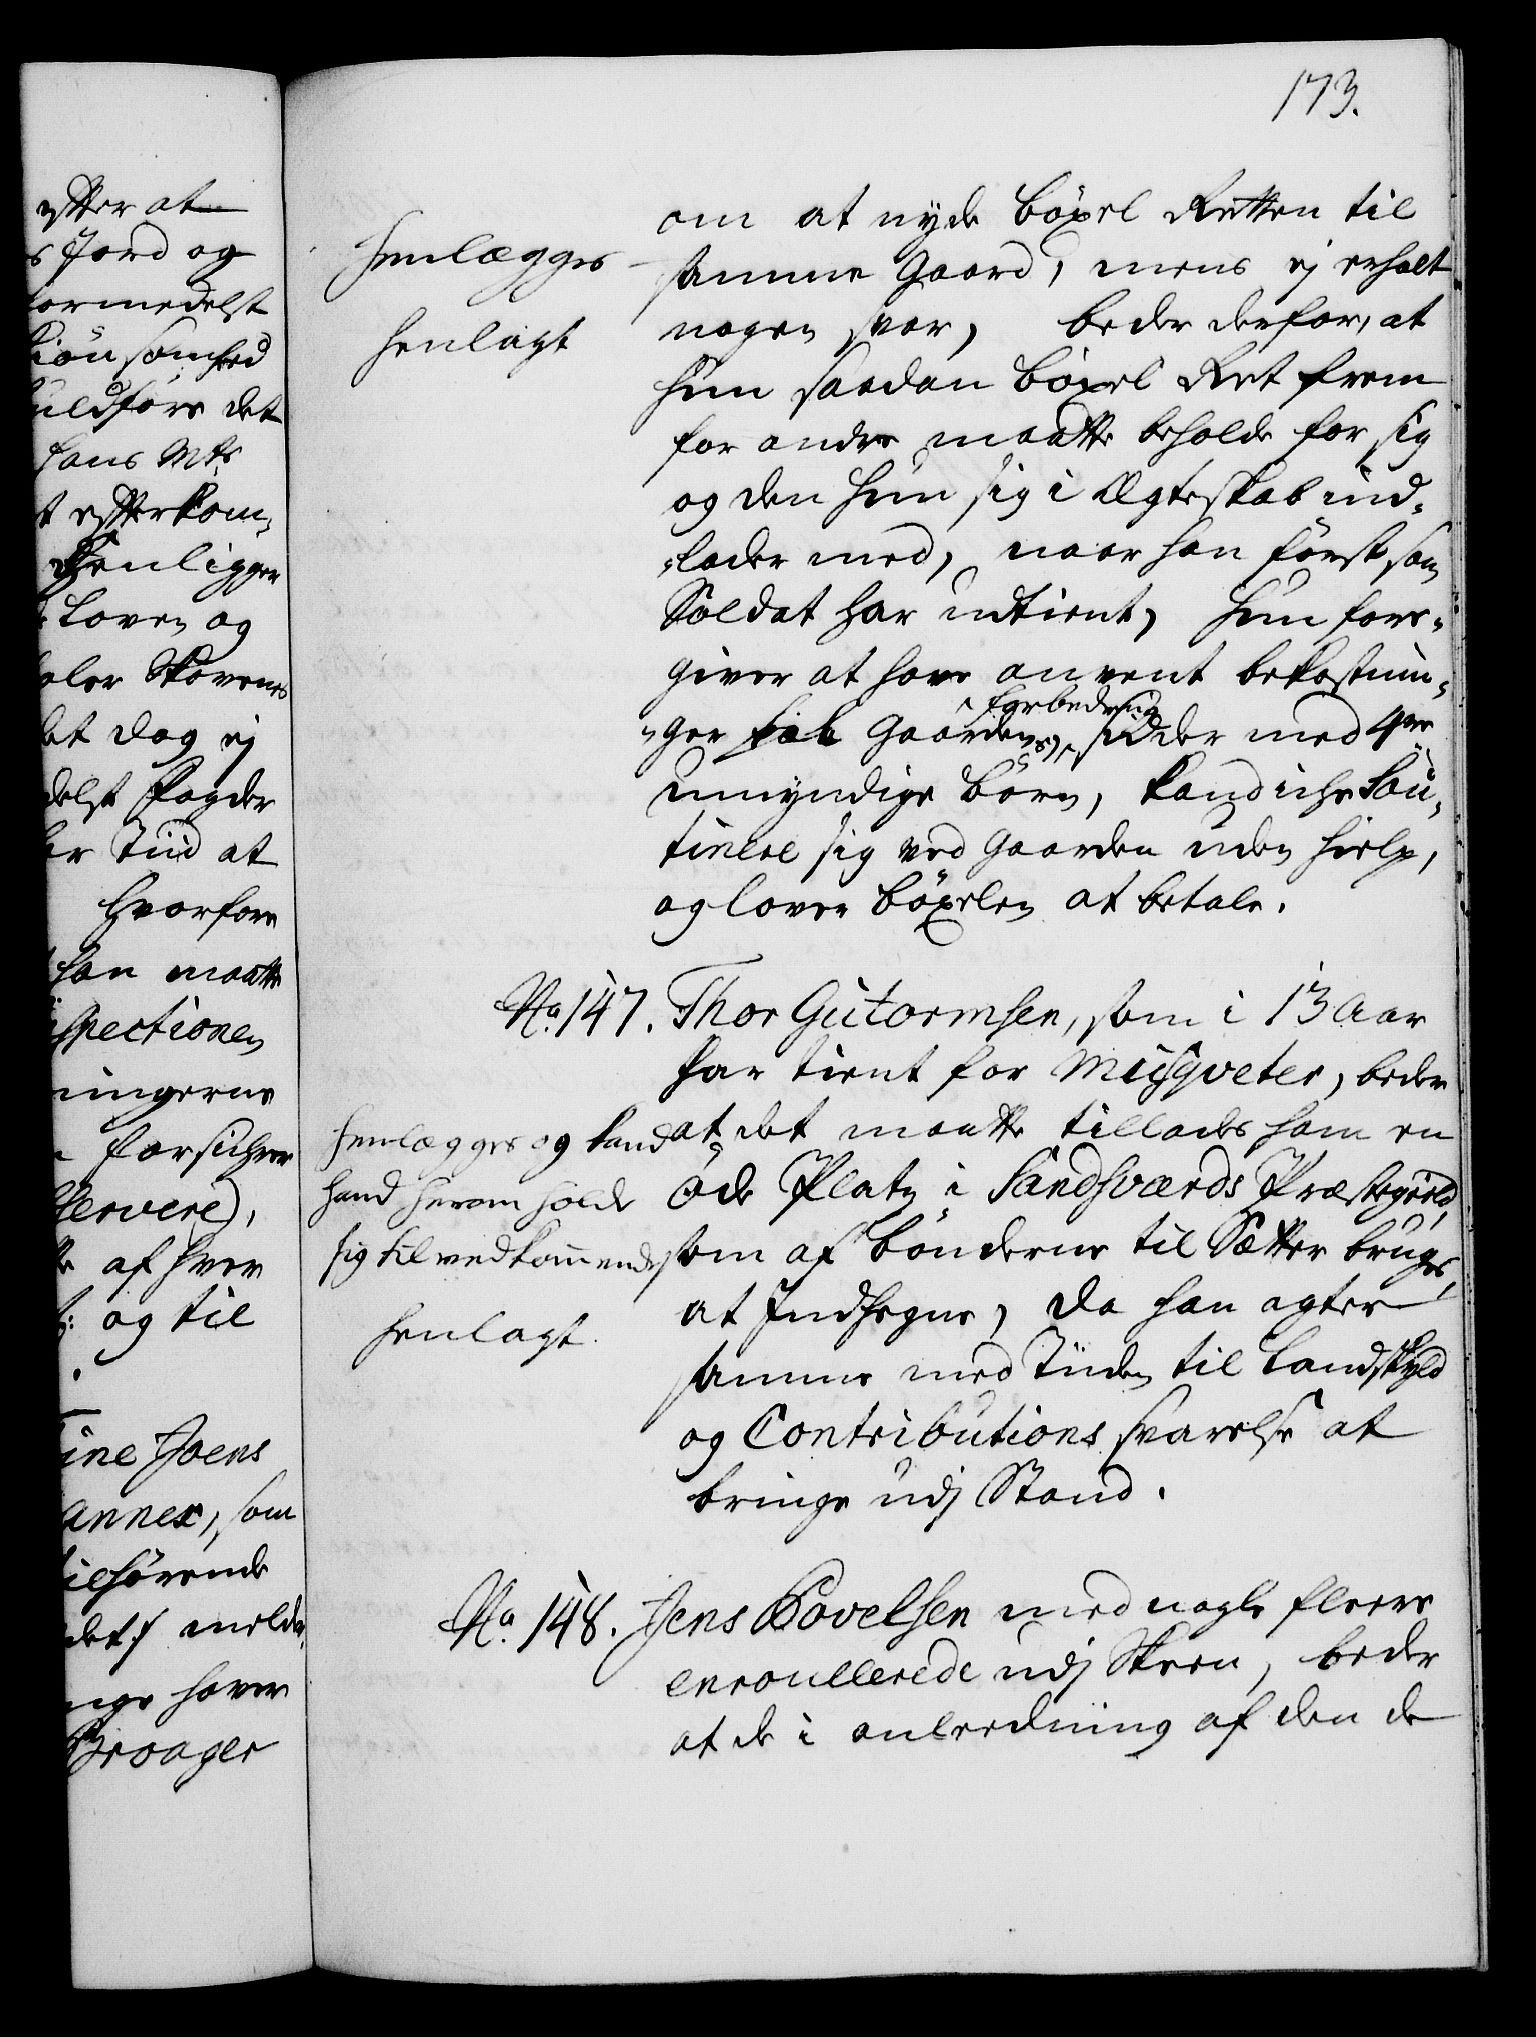 173.
efter at
s Jord og
formedelst
Skiønsomhed
uldføre det
Hans Mts
t efterkom„
Henligger
Loven og
aler Skovenes
det dog ej
delst Fogder
er Tiid at
Hvorfore
han maatte
spectionen
ningerne
forsichrer
Reservere),
af hver
og til
ine Joens
annex, som
tilhørende
det:/ melder
nge haver
Broager
Henlægges
henlagt
om at nyde böxel Retten til
samme Gaard, mens ej erholt
nogen svar, beder derfor, at
hun saadan böxel Ret frem
for andre maatte beholde for sig
og den hun sig i Ægteskab ind„
„lader med, naar han først som
Soldat har udtient, hun fore„
giver at have anvent bekostnin„
„ger paa Gaardens forbedring, sidder med 4re
umyndige börn, kand icke Sou„
tinere sig ved Gaarden uden hielp,
og lover böxelen at betale.
No. 147. Thor Gutormsen, som i 13 Aar
har tient for Musqveter, beder
at det maatte tillades ham en
øde Platz i Sandsværds Præstegield,
som af bönderne til Sætter bruges,
at Indhegne, da han agter
samme med Tiiden til Landskyld
og Contributions svarelse at
bringe udj Stand.
Henlægges og kand
hand herom holde
sig til vedkommende
henlagt.
No. 148. Jens Povelsen med nogle fleere
enroullerede udj Skeen, beder
at de i anleedning af den de